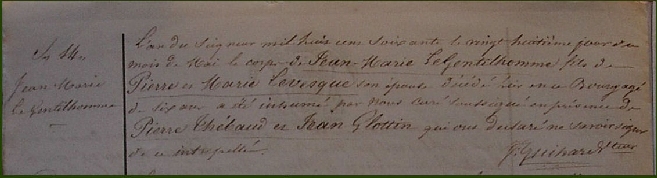 Sp 14e
Jean-Marie
Le Gentilhomme
L'an du Seigneur mil huit cent soixante le vingt-huitième jour du
mois de Mai le corps de Jean-Marie Le Gentilhomme fils de
Pierre et Marie Levesque son épouse décédé hier en ce Bourg agé
de six ans a été inhumé par nous curé soussigné en présence de
Pierre Thébaud et Jean Glottin qui ont déclaré ne savoir signer
de ce interpellé.
J. Guihard